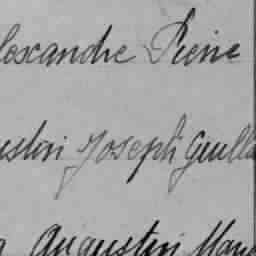 lexandre Pierre
ustin Joseph Guilla
Augustin Mar